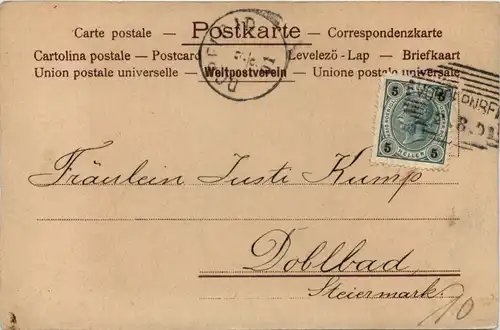 Carte postale — Postkarte — Correspondenzkarte
Cartolina postale — Postcard Levelező-Lap — Briefkaart
Union postale universelle — Weltpostverein — Unione postale universale
5 5
5 HELLER 5
Fräulein Justi Kump
Doblbad
Steiermark.
10